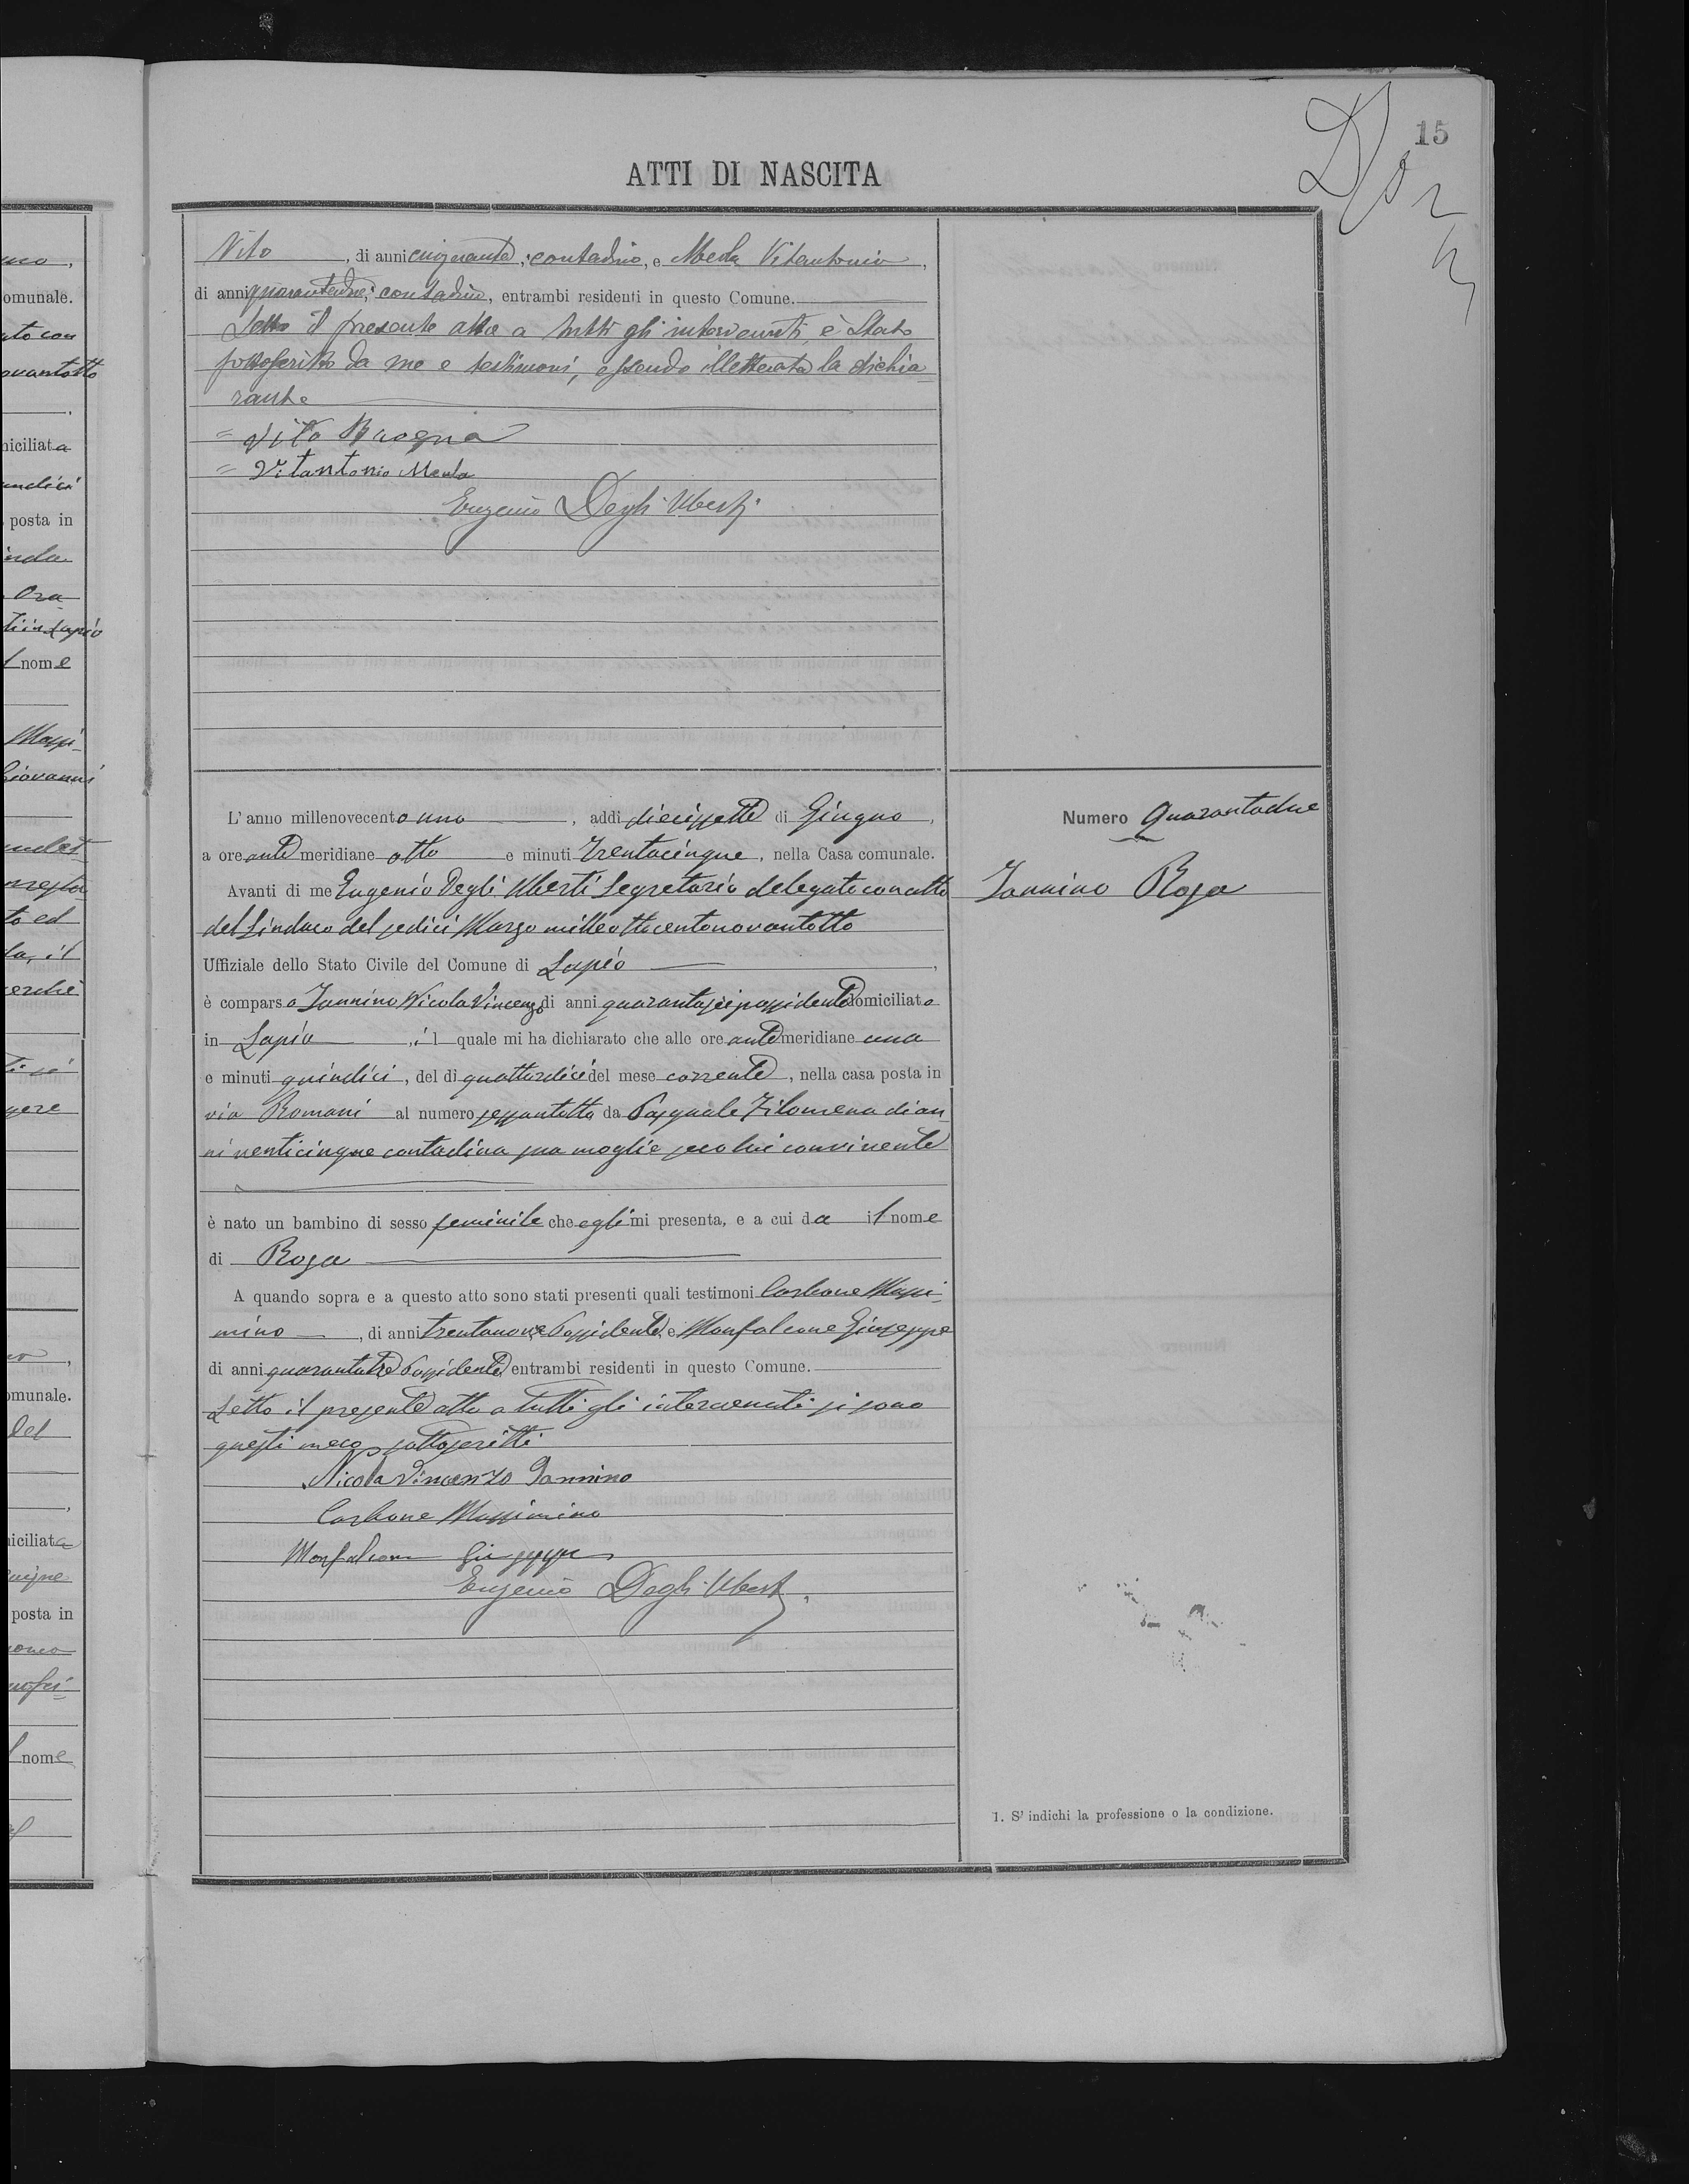 15
ATTI DI NASCITA
Vito, di anni cinquanta, contadino, e Meola Vitantonio,
di anni quarantadue, contadino, entrambi residenti in questo Comune.
Letto il presente atto a tutti gli intervenuti, è stato
sottoscritto da me e testimoni, essendo illetterata la dichia
rante
= Vito
= Vitantonio Meola
Eugenio Degli Uberti
L'anno millenovecento uno, addì diecissette di Giugno,
a ore antemeridiane otto e minuti trentacinque, nella Casa comunale.
Avanti di me Eugenio Degli Uberti Segretario delegato con atto
del Sindaco del sedici Marzo milleottocentonovantotto
Uffiziale dello Stato Civile del Comune di Lapio,
è comparso Iannino Nicola Vincenzo di anni quarantasei possidente domiciliato
in Lapio, il quale mi ha dichiarato che alle ore antemeridiane una
e minuti quindici, del dì quattordici del mese corrente, nella casa posta in
via Romani al numero sessantotto da Pasquale Filomena di an
ni venticinque contadina sua moglie seco lui convivente
è nato un bambino di sesso feminile che egli mi presenta, e a cui da il nome
di Rosa
A quando sopra e a questo atto sono stati presenti quali testimoni Carbone Massi-
mino, di anni trentanove Possidente, e Monfalcone Giuseppe
di anni quarantatre Possidente, entrambi residenti in questo Comune.
Letto il presente atto a tutti gli intervenuti si sono
questi meco sottoscritti
Nicola Vincenzo Iannino
Carbone Massimino
Monfalcone Giuseppe
Eugenio Degli Uberti
Numero Quarantadue
Iannino Rosa
1. S'indichi la professione o la condizione.
omunale.
ovantotto
miciliata
undici
posta in
Ora
l nome
Massi-
Giovanni
to ed
la, il
omunale.
del
iciliata
posta in
l nome